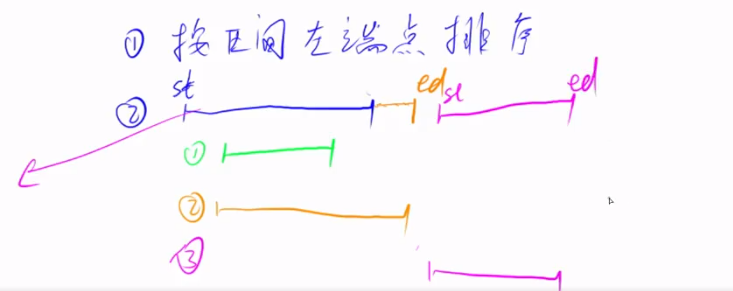 ① 按区间左端点排序
② st ed st ed
①
②
③